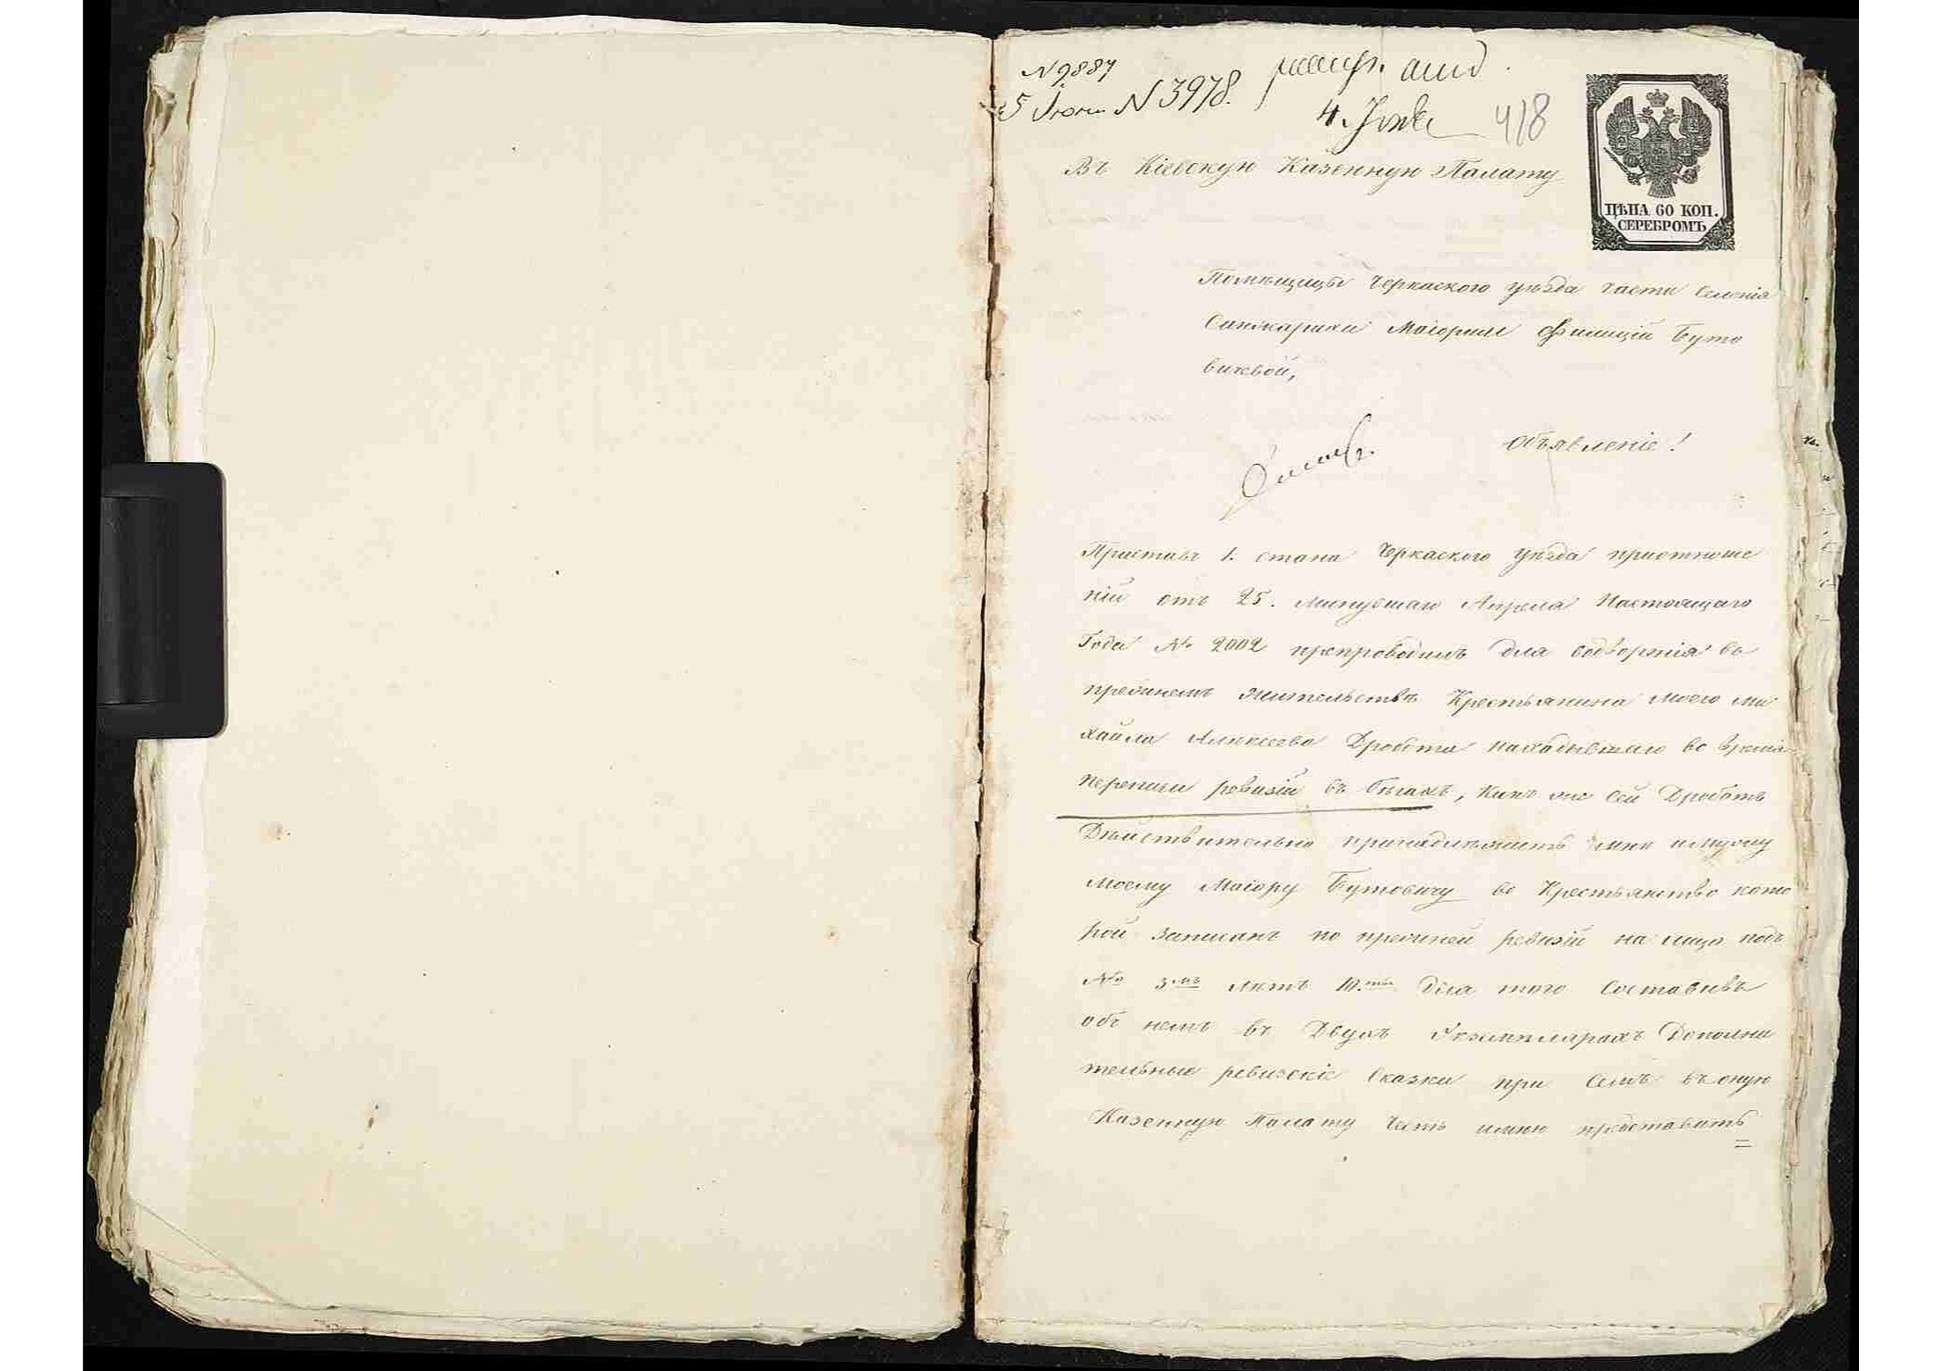 N 9887
5 Июня N 3978.
4. Июня 418
Въ Кіевскую Казенную Палату
ЦѢНА 60 КОП.
СЕРЕБРОМЪ
Помѣщицы Черкаского уѣзда части Селенія
Санжарихи Маіорши Филиціи Буто
вичевой,
Объявленіе!
Приставъ 1. стана Черкаского уѣзда приотноше
ніи отъ 25. минувшаго Апреля Настоящаго
Года № 2002 препроводилъ для водворенія во
прежнемъ жительствѣ Крестьянина моего Ми
хайла Алексеева Дробота находившаго во время
переписи ревизіи въ бѣгахъ, Какъ же сей Дроботъ
Дѣйствительно принадлежитъ мнѣ и мужу
моему Маіору Бутовичу во Крестьянство кото
рой записанъ по прежней ревизіи на лицо подъ
№ 3мъ лѣтъ 10.ти для того Составивъ
объ немъ въ Двухъ Экземплярахъ Дополни
тельные ревизскіе Сказки при Семъ въ оную
Казенную Палату честь имею представить